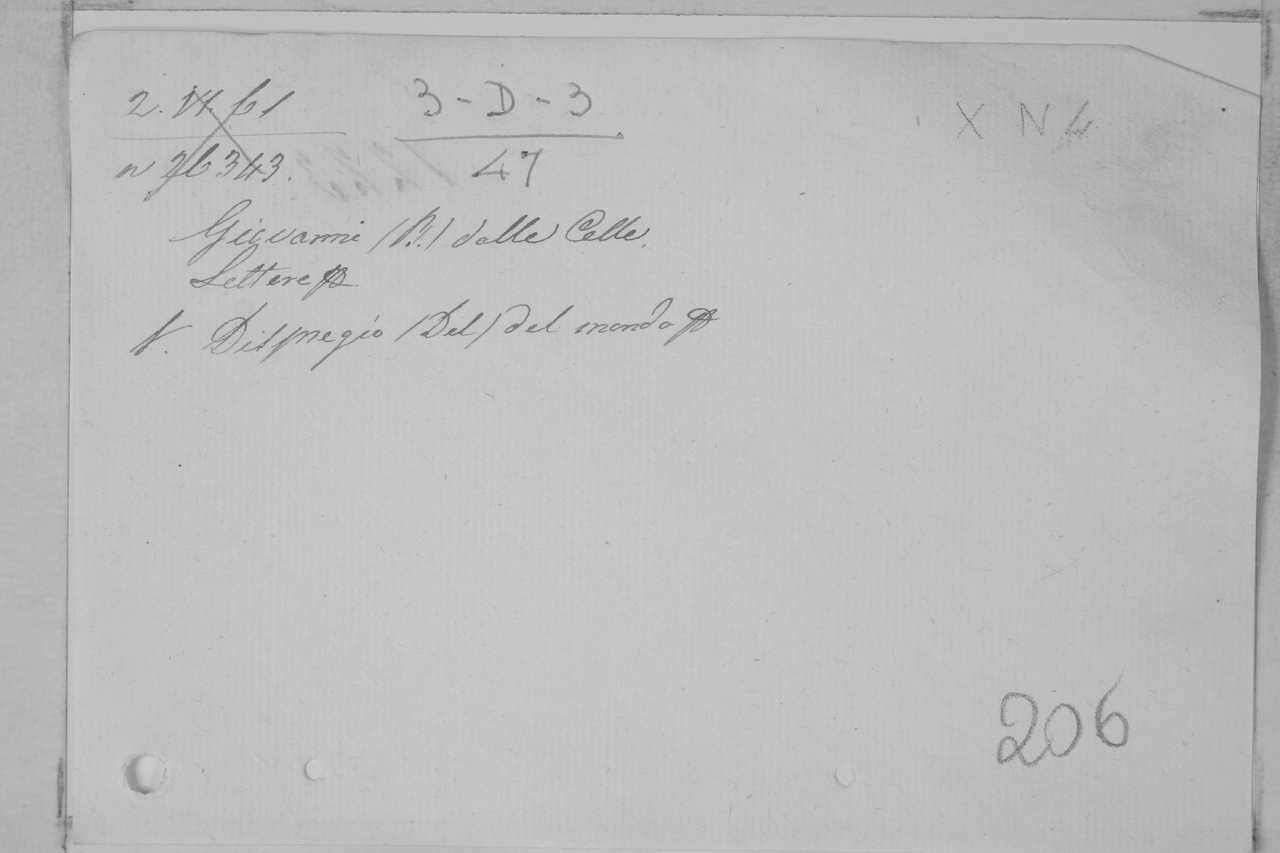 2. VI. 61
n 26343.
3-D-3
47
X N 4
Giovanni (B.) dalle Celle.
Lettere
V. Dispregio (Del) del mondo
206